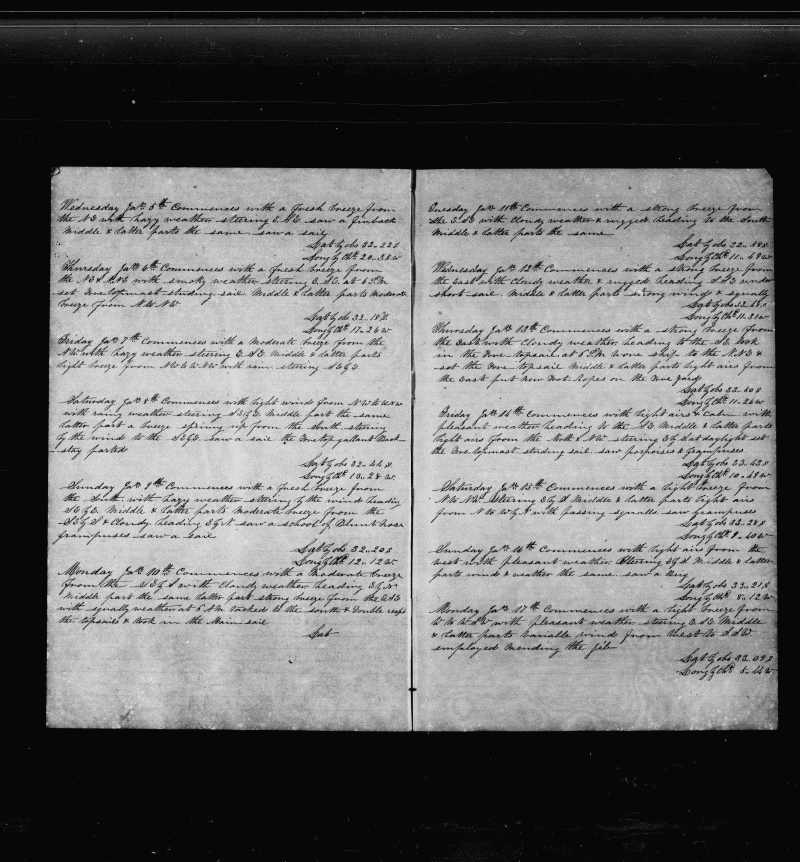 Wednesday Jan 5th Commences with a fresh breeze from
the NE with hazy weather steering E.SE. saw a finback
Middle & latter parts the same saw a sail
Lat by obs 32-22 S
Long by Chr 20-35 W
Thursday Jan 6th Commences with a fresh breeze from
the NE & NNE with smoky weather steering E.SE. at 6 P.M.
set Foretopmast studing sail Middle & latter parts Moderate
breeze from N.W NW
Lat by obs 32-18 S.
Long by Chr 17-26 W
Friday Jan 7th Commences with a Moderate breeze from the
NW with hazy weather steering E.SE Middle & latter parts
light breeze from NW & W.NW with rain steering SE by E
Saturday Jan 8th Commences with light wind from NW to WNW
with rainy weather steering SE by E. Middle part the same
latter part a breeze spring up from the South. steering
by the wind to the SE by E. saw a sail the Foretopgallant Back
stay parted
Lat by obs 32-44 S.
Long by Chr 15-24 W.
Sunday Jan 9th Commences with a fresh breeze from
the South with hazy weather steering by the wind heading
SE by E. Middle & latter parts Moderate breeze from the
SE by S & Cloudy heading E by N saw a school of Blunt nose
grampuses saw a sail
Lat by obs 32-20 S
Long by Chr 12-12 W
Monday Jan 10th Commences with a Moderate breeze
from the SE by S with Cloudy weather heading E by N
Middle part the same latter part strong breeze from the E.SE
with squally weather at 6 AM tacked to the South & double reefs
the topsails & took in the Main sail
Lat
Tuesday Jan 11th Commences with a strong breeze from
the E.SE with Cloudy weather & rugged heading to the South
Middle & latter parts the same
Lat by obs 32-58 S
Long by Chr 11-49 W
Wednesday Jan 12th Commences with a strong breeze from
the East with Cloudy weather & rugged heading S.SE under
short sail. Middle & latter parts strong winds & squally
Lat by obs 33-48 S
Long by Chr 11-31 W
Thursday Jan 13th Commences with a strong breeze from
the East with Cloudy weather heading to the SE took
in the Fore topsail at 6 P.M. wore ship to the NNE &
set the Fore topsail Middle & latter parts light airs from
the East put New Foot Ropes on the Fore yard
Lat by obs 33-50 S
Long by Chr 11-26 W
Friday Jan 14th Commences with light airs & Calm with
pleasant weather heading to the SE Middle & latter parts
light airs from the North & NW steering E by S at daylight set
the Fore topmast studing sail saw porpoises & grampuses
Lat by obs 33-43 S
Long by Chr 10-49 W
Saturday Jan 15th Commences with a light breeze from
N to NW. Steering E by S Middle & latter parts light airs
from N to W by S with passing squalls saw grampuses
Lat by obs 33-28 S
Long by Chr 9-40 W
Sunday Jan 16th Commences with light airs from the
west with pleasant weather Steering E by S Middle & latter
parts wind & weather the same. saw a Brig
Lat by obs 33-21 S
Long by Chr 8-12 W
Monday Jan 17th Commences with a light breeze from
W to W.SW with pleasant weather steering E.SE Middle
& latter parts Variable wind from West to S.SW
employed Mending the jib
Lat by obs 33-09 S
Long by Chr 5-44 W